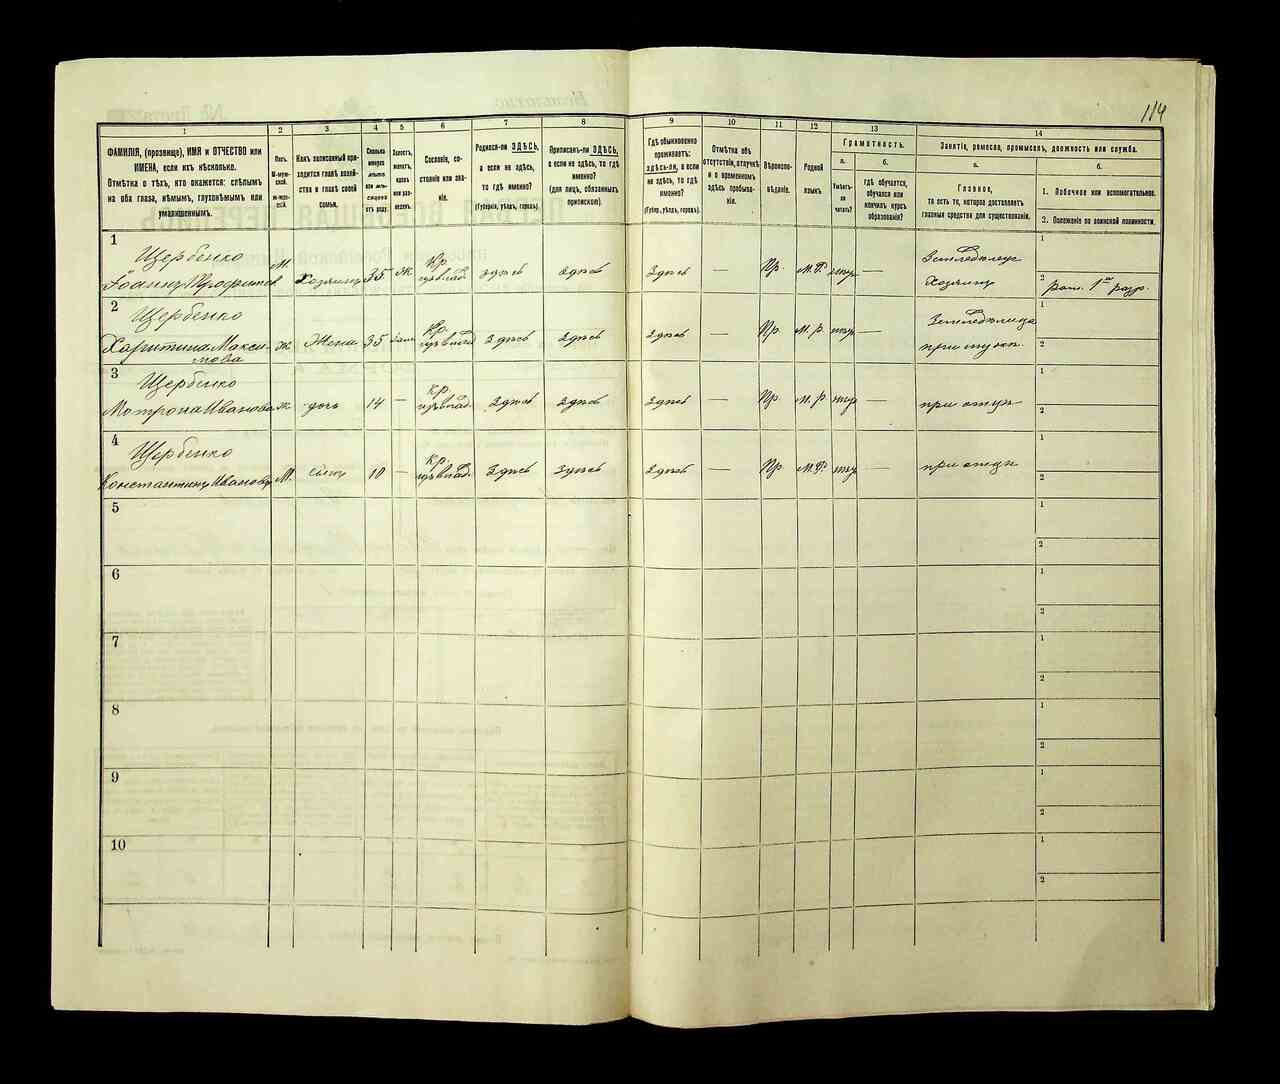 114
1
2
3
4
5
6
7
8
9
10
11
12
13
14
ФАМИЛІЯ, (прозвище), ИМЯ и ОТЧЕСТВО или
ИМЕНА, если ихъ нѣсколько.
Отмѣтка о тѣхъ, кто окажется: слѣпымъ
на оба глаза, нѣмымъ, глухонѣмымъ или
умалишеннымъ.
Полъ.
М-муж-
ской.
Ж-жен-
скій.
Какъ записанный при-
ходится главѣ хозяй-
ства и главѣ своей
семьи.
Сколько
минуло
лѣтъ
или мѣ-
сяцевъ
отъ роду.
Холостъ,
женатъ,
вдовъ
или раз-
веденъ.
Сословіе, со-
стояніе или зва-
ніе.
Родился-ли ЗДѢСЬ,
а если не здѣсь,
то гдѣ именно?
(Губернія, уѣздъ, городъ).
Приписанъ-ли ЗДѢСЬ,
а если не здѣсь, то гдѣ
именно?
(для лицъ, обязанныхъ
припиской).
Гдѣ обыкновенно
проживаетъ:
здѣсь-ли, а если
не здѣсь, то гдѣ
именно?
(Губер., уѣздъ, городъ).
Отмѣтка объ
отсутствіи, отлучкѣ
и о временномъ
здѣсь пребыва-
ніи.
Вѣроиспо-
вѣданіе.
Родной
языкъ.
Грамотность.
а.
Умѣетъ-
ли
читать?
б.
гдѣ обучается,
обучался или
кончилъ курсъ
образованія?
Занятіе, ремесло, промыселъ, должность или служба.
а.
Главное,
то есть то, которое доставляетъ
главныя средства для существованія.
б.
1. Побочное или вспомогательное.
2. Положеніе по воинской повинности.
1 Щербенко
Іоаннъ Трофимов М Хозяинъ 35 Ж Кр. здѣсь здѣсь здѣсь — Пр. М.Р. — Хозяинъ 1 2 1го разр.
2 Щербенко
Харитина Макси-
мова Ж Жена 35 Кр. здѣсь здѣсь здѣсь — Пр. М.р — при мужѣ 1 2
3 Щербенко
Мотрона Иванова Ж дочь 14 — Кр. здѣсь здѣсь здѣсь — Пр. М.р — при отцѣ 1 2
4 Щербенко
Константинъ Ивановъ М. сынъ 10 — Кр. здѣсь здѣсь здѣсь — Пр. М.Р. — при отцѣ 1 2
5 1 2
6 1 2
7 1 2
8 1 2
9 1 2
10 1 2